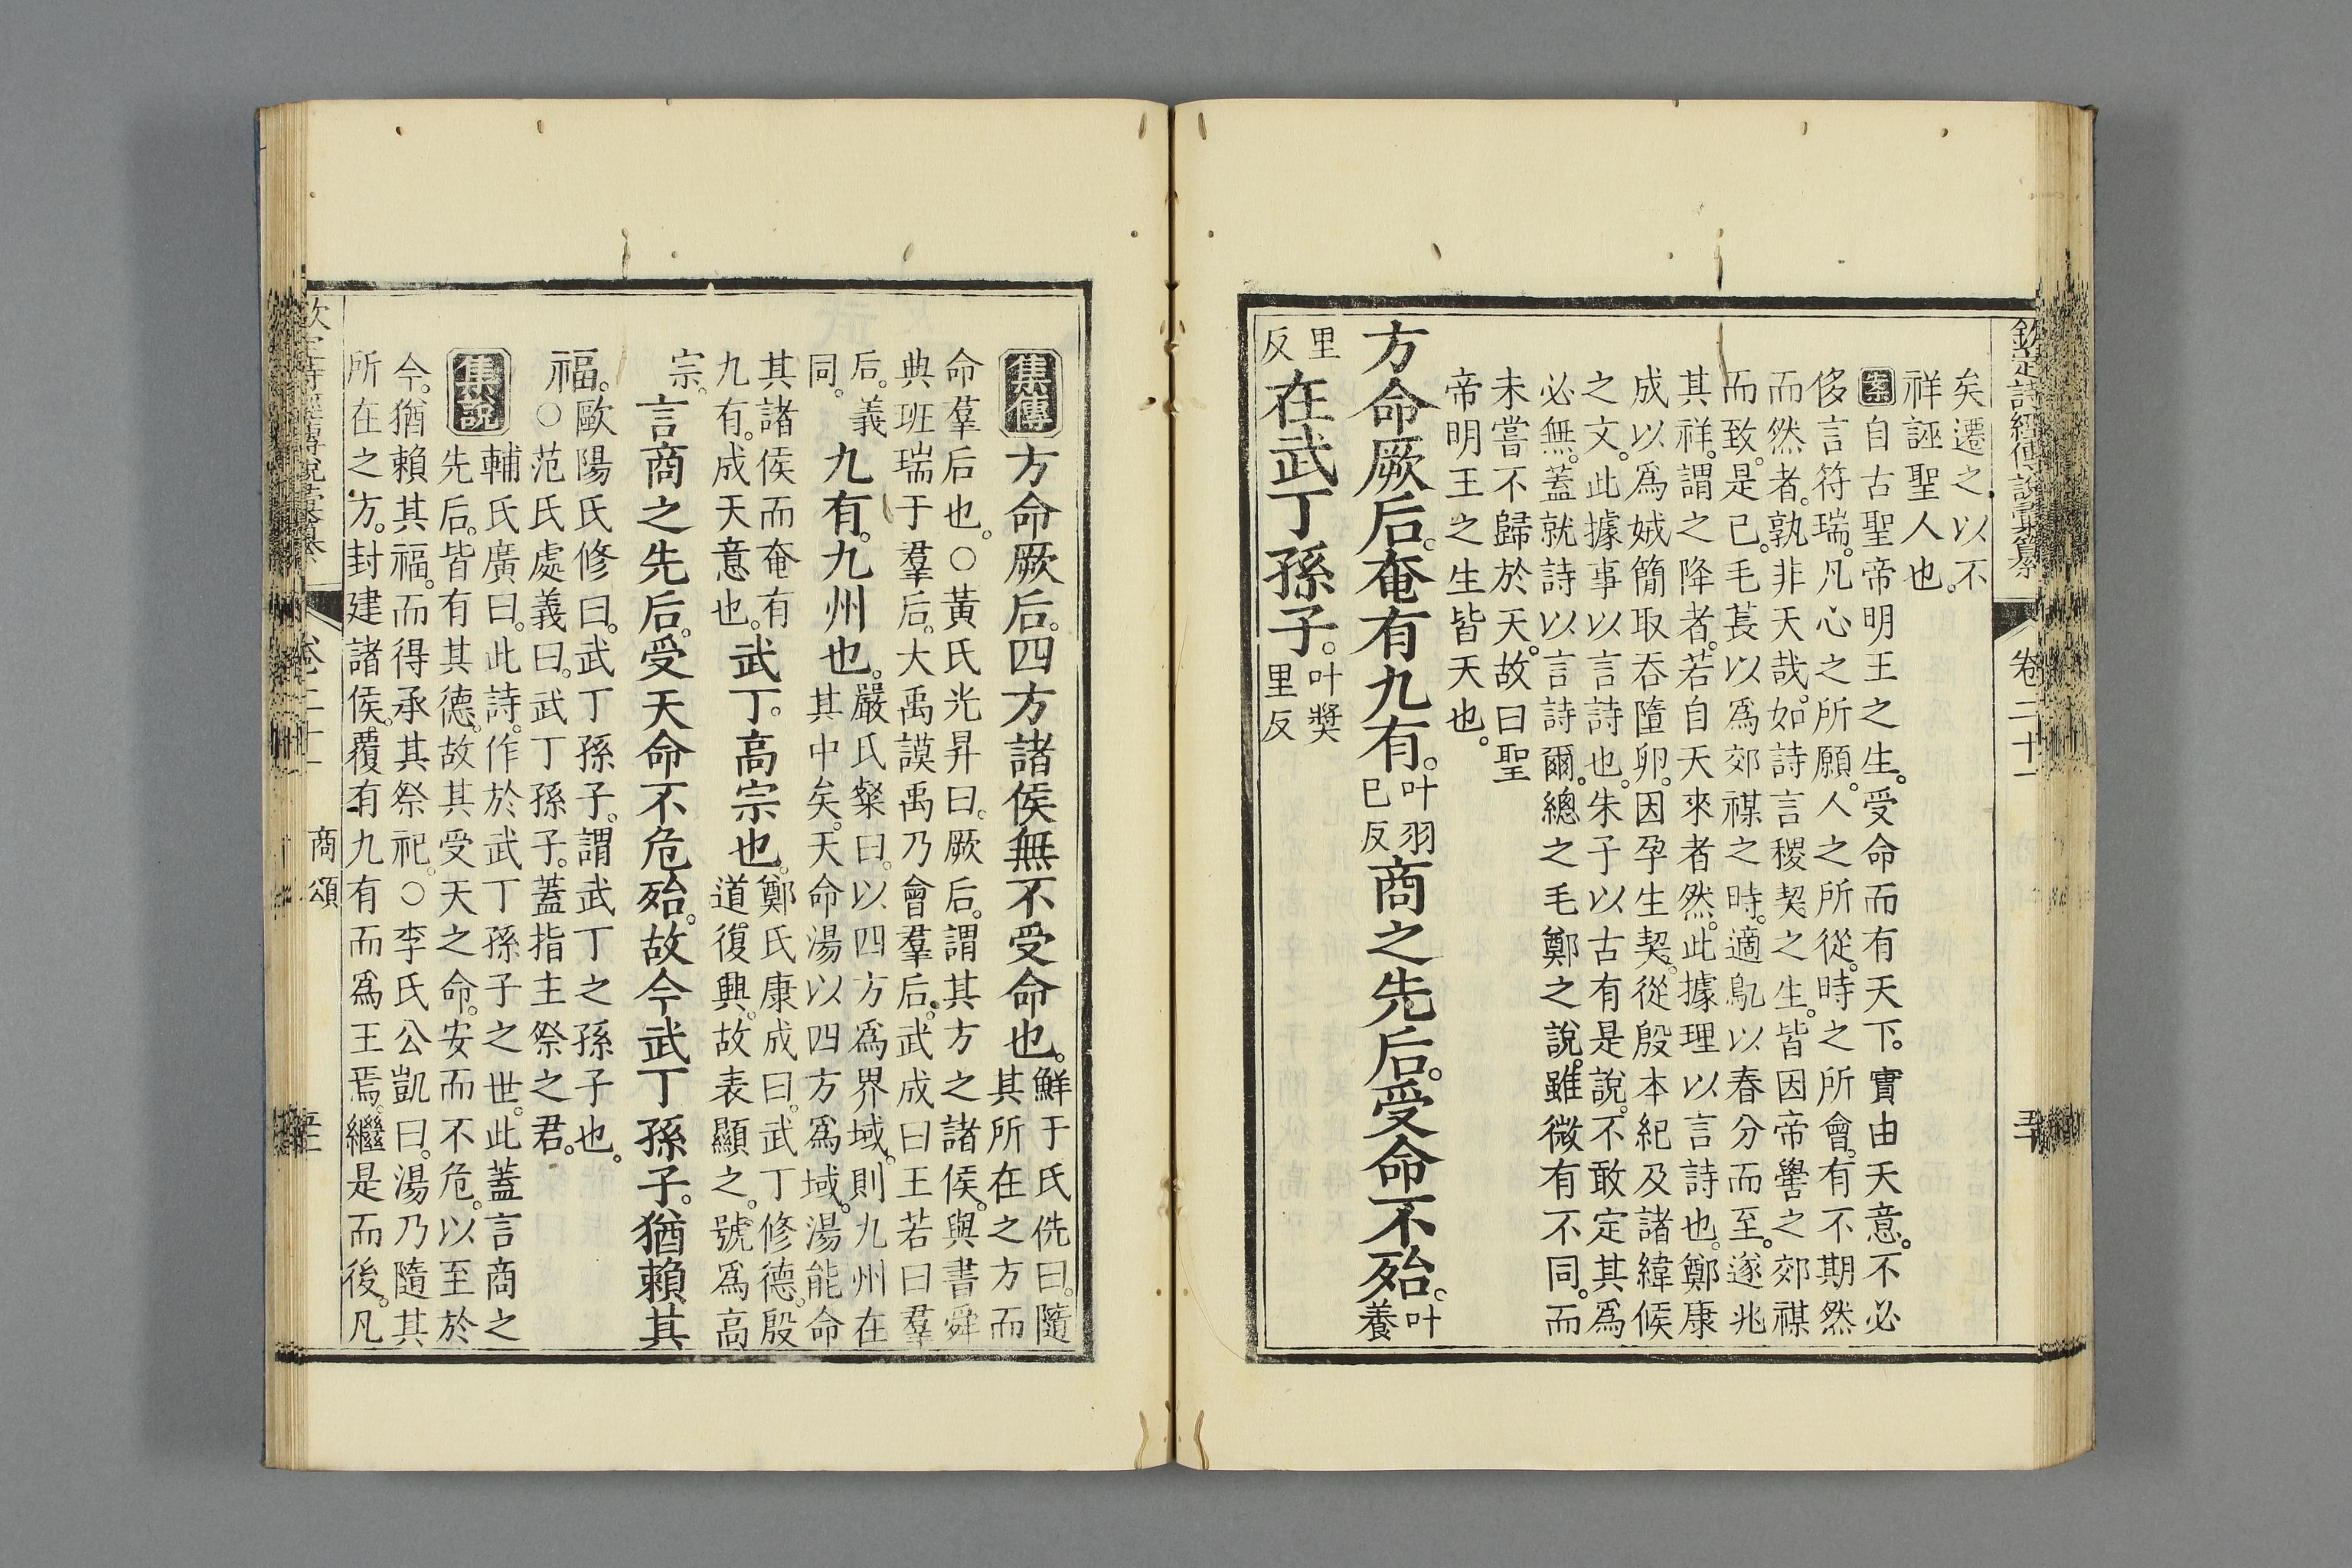 欽定詩經傳說彙纂 卷二十一
矣遷之以不
祥誣聖人也。
案自古聖帝明王之生。受命而有天下。實由天意。不必
侈言符瑞。凡心之所願。人之所從。時之所會。有不期然
而然者。孰非天哉。如詩言稷契之生。皆因帝嚳之郊禖
而致。是已。毛萇以爲郊禖之時。適鳦以春分而至。遂兆
其祥。謂之降者。若自天來者然。此據理以言詩也。鄭康
成以爲娀簡取吞墮卵。因孕生契。從殷本紀及諸緯候
之文。此據事以言詩也。朱子以古有是說。不敢定其爲
必無。蓋就詩以言詩爾。總之毛鄭之說。雖微有不同。而
未嘗不歸於天。故曰聖
帝明王之生皆天也。
方命厥后。奄有九有。叶羽已反商之先后。受命不殆。叶養
里反在武丁孫子。叶奬里反
集傳方命厥后。四方諸侯無不受命也。鮮于氏侁曰。隨其所在之方而
命羣后也。○黃氏光昇曰。厥后。謂其方之諸侯。與書舜
典班瑞于羣后。大禹謨禹乃會羣后。武成曰王若曰羣
后。義同。九有。九州也。嚴氏粲曰。以四方爲界域。則九州在其中矣。天命湯以四方爲域。湯能命
其諸侯而奄有九有。成天意也。武丁。高宗也。鄭氏康成曰。武丁修德。殷道復興。故表顯之。號爲高
宗。言商之先后。受天命不危殆。故今武丁孫子。猶賴其
福。歐陽氏修曰。武丁孫子。謂武丁之孫子也。
○范氏處義曰。武丁孫子。蓋指主祭之君。
集說輔氏廣曰。此詩。作於武丁孫子之世。此蓋言商之
先后。皆有其德。故其受天之命。安而不危。以至於
今。猶賴其福。而得承其祭祀。○李氏公凱曰。湯乃隨其
所在之方。封建諸侯。覆有九有而爲王焉。繼是而後。凡
卷二十一 商頌